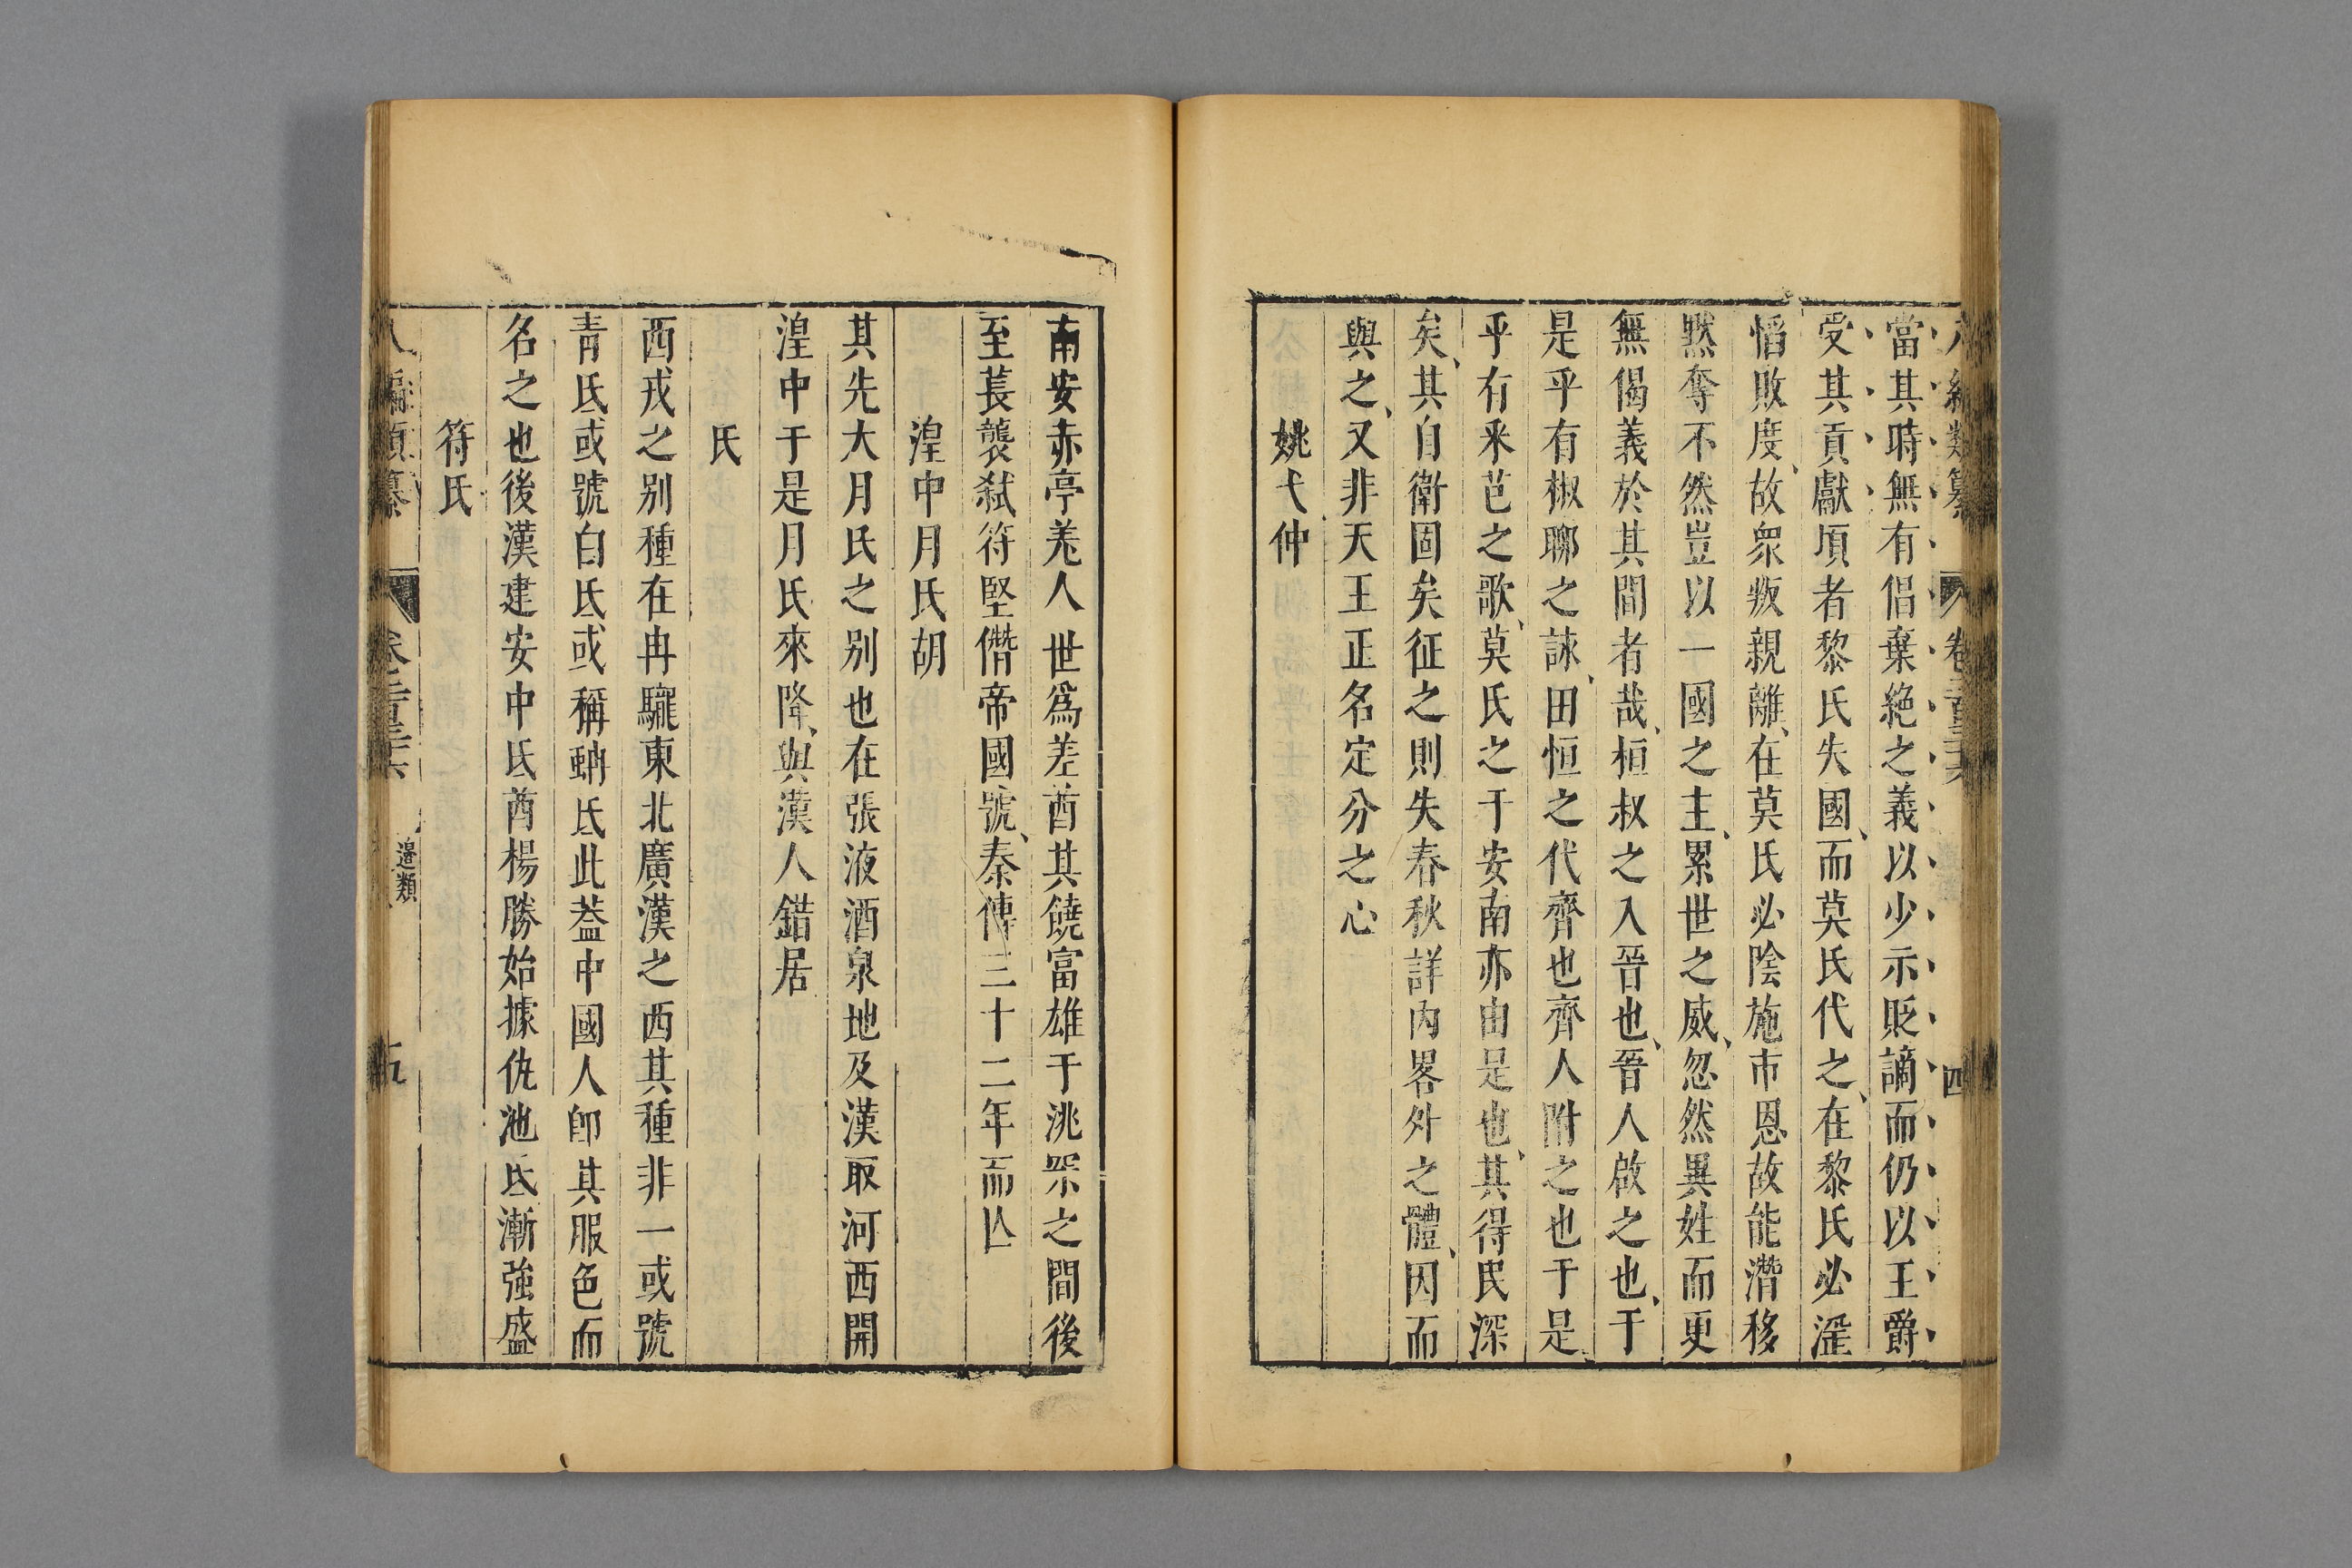 八編類纂 卷二百三十六 四
當其時無有侶棄絶之義以少示貶謫而仍以王爵
受其貢獻頃者黎氏失國、而莫氏代之、在黎氏必滛
慆敗度、故衆叛親離、在莫氏必陰施市恩故能潛移
黙奪不然豈以一國之主、累世之威、忽然異姓而更
無偈義於其間者哉、桓叔之入晉也、晉人啟之也、于
是乎有椒聊之誅、田恒之代齊也齊人附之也于是
乎有釆芑之歌、莫氏之于安南亦由是也、其得民深
矣、其自衛固矣征之則失春秋詳內畧外之體、因而
與之、又非天王正名定分之心
姚弋仲
南安赤亭羌人世爲差酋其饒富雄于洮罙之間後
至萇襲弑符堅僭帝國號、秦傳三十二年而亾
湟中月氏胡
其先大月氏之别也在張液酒泉地及漢取河西開
湟中于是月氏來降、與漢人錯居
氐
西戎之别種在冉駹東北廣漢之西其種非一或號
青氐或號白氐或稱蚺氐此葢中國人卽其服色而
名之也後漢建安中氐酋楊勝始據仇池氐漸強盛
符氏
八編類纂 卷二百三十六 邉類 五